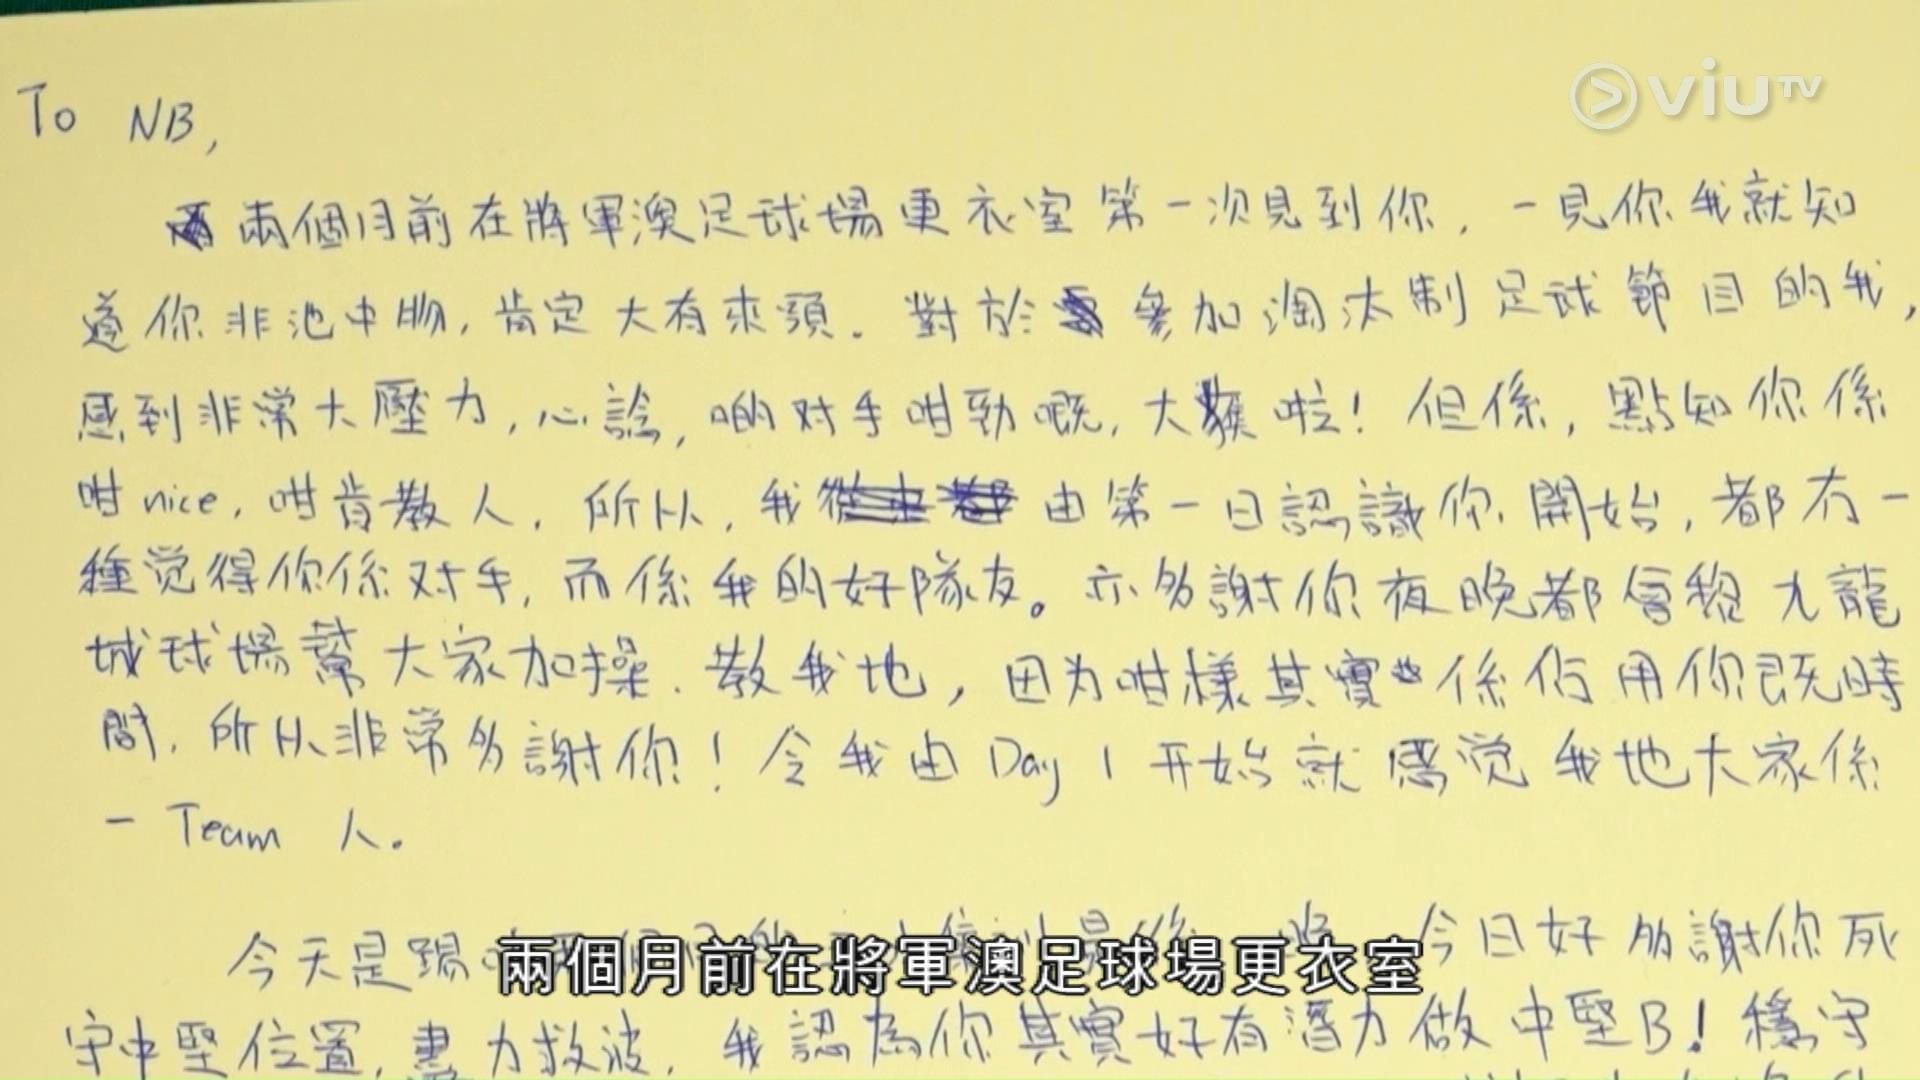 viuTV
To NB,
兩個月前在將軍澳足球場更衣室第一次見到你，一見你我就知
道你非池中物，肯定大有來頭。對於參加淘汰制足球節目的我，
感到非常大壓力，心諗，啲对手咁勁嘅，大獲啦！但係，點知你係
咁nice，咁肯教人，所以，我由第一日認識你開始，都冇一
種觉得你係对手，而係我的好隊友。亦多謝你夜晚都會黎九龍
城球場幫大家加操，教我地，因为咁樣其實係佔用你既時
間，所以非常多謝你！令我由Day 1开始就感觉我地大家係
一Team人。
今天是踢 今日好多謝你死
守中堅位置，盡力救波，我認為你其實好有潛力做中堅B！穩守
兩個月前在將軍澳足球場更衣室